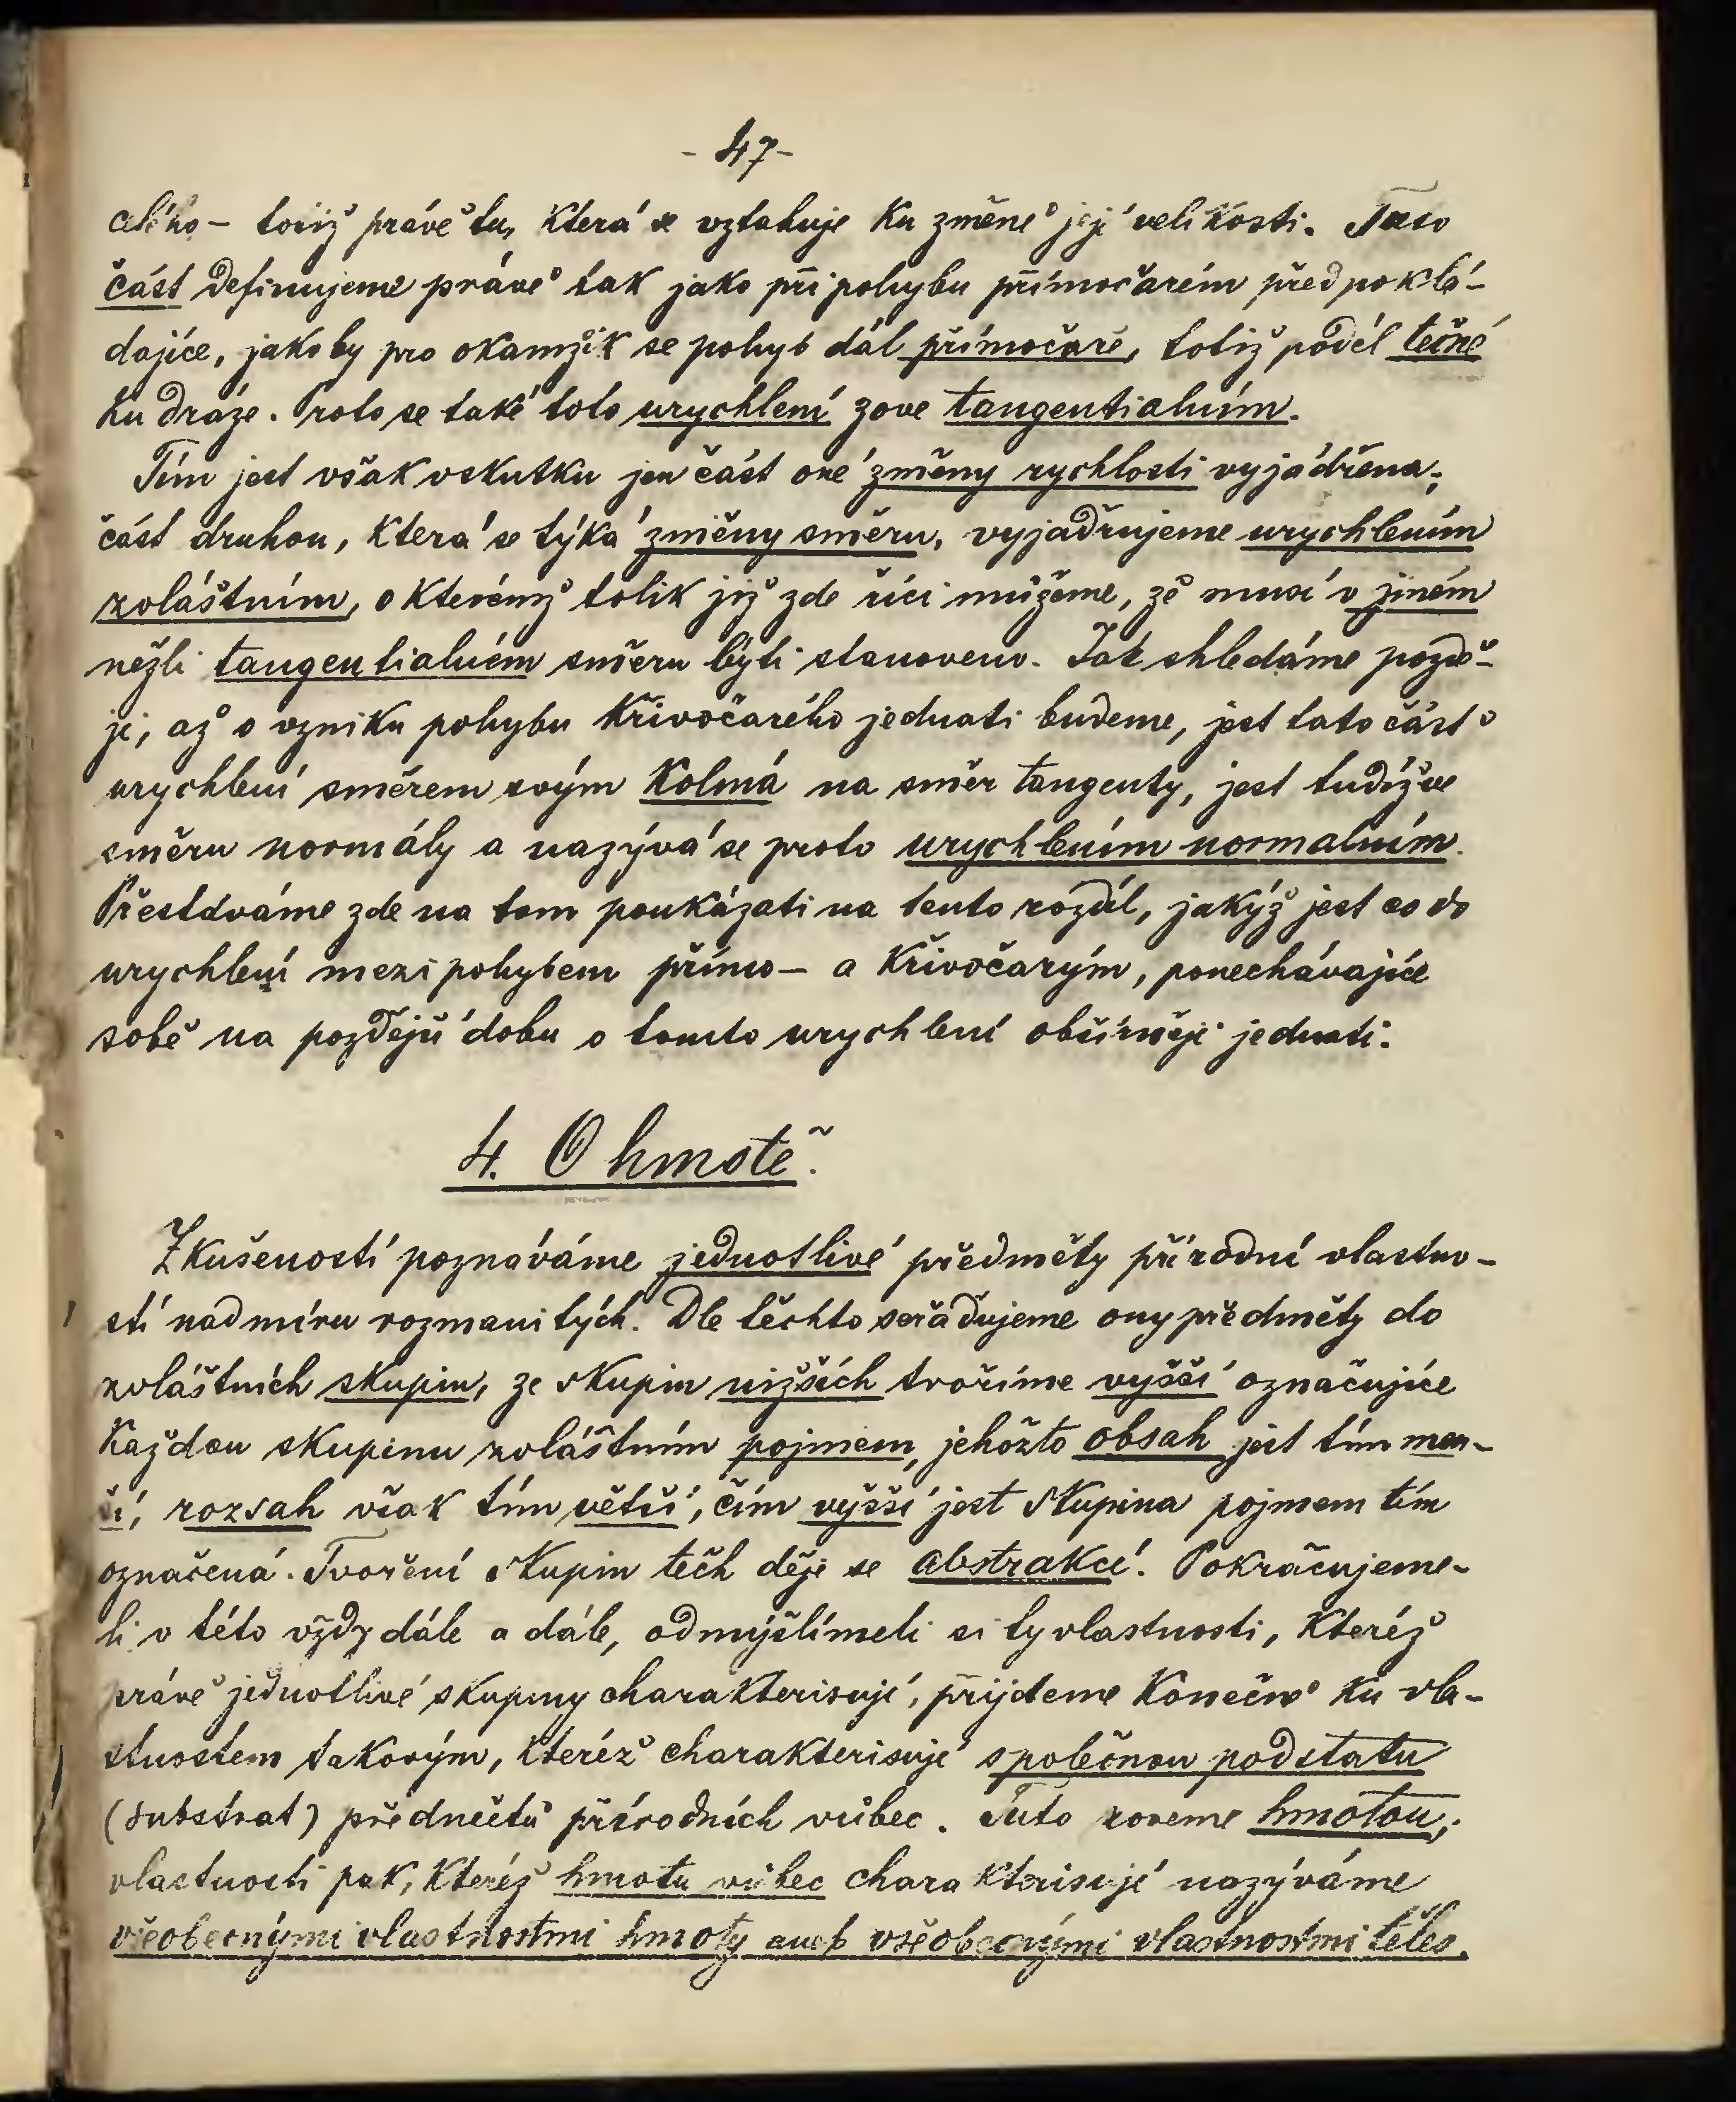 - 47 -
celého – totiž právě tu, která se vztahuje ku změně její velikosti. Tuto
část definujeme právě tak jako při pohybu přímočarém předpoklá-
dajíce, jakoby pro okamžik se pohyb dál přímočaře, totiž podél tečné
ku dráze. Proto se také toto urychlení zove tangentialním.
Tím jest však vskutku jen část oné změny rychlosti vyjádřena;
část druhou, která se týká změny směru, vyjadřujeme urychlením
zvláštním, o kterémž tolik již zde říci můžeme, že musí v jiném
nežli tangentialném směru býti stanoveno. Jak shledáme pozdě-
ji, až o vzniku pohybu křivočarého jednati budeme, jest tato část
urychlení směrem svým kolmá na směr tangenty, jest tudíž ve
směru normály a nazývá se proto urychlením normalním.
Přestáváme zde na tom poukázati na tento rozdíl, jakýž jest co do
urychlení mezi pohybem přímo – a křivočarým, ponechávajíce
sobě na pozdější dobu o tomto urychlení obšírněji jednati.
4. O hmotě.
Zkušeností poznáváme jednotlivé předměty přírodní vlastno-
stí nadmíru rozmanitých. Dle těchto seřaďujeme ony předměty do
zvláštních skupin, ze skupin nižších tvoříme vyšší označujíce
každou skupinu zvláštním pojmem, jehožto obsah jest tím men-
ší, rozsah však tím větší, čím vyšší jest skupina pojmem tím
označená. Tvoření skupin těch děje se abstrakcí. Pokračujeme-
li v této vždy dále a dále, odmýšlímeli si ty vlastnosti, kteréž
právě jednotlivé skupiny charakterisují, přijdeme konečně ku vla-
stnostem takovým, kteréž charakterisují společnou podstatu
(substrat) předmětů přírodních vůbec. Tuto zoveme hmotou;
vlastnosti pak, kteréž hmotu vůbec charakterisují nazýváme
všeobecnými vlastnostmi hmoty aneb všeobecnými vlastnostmi těles.